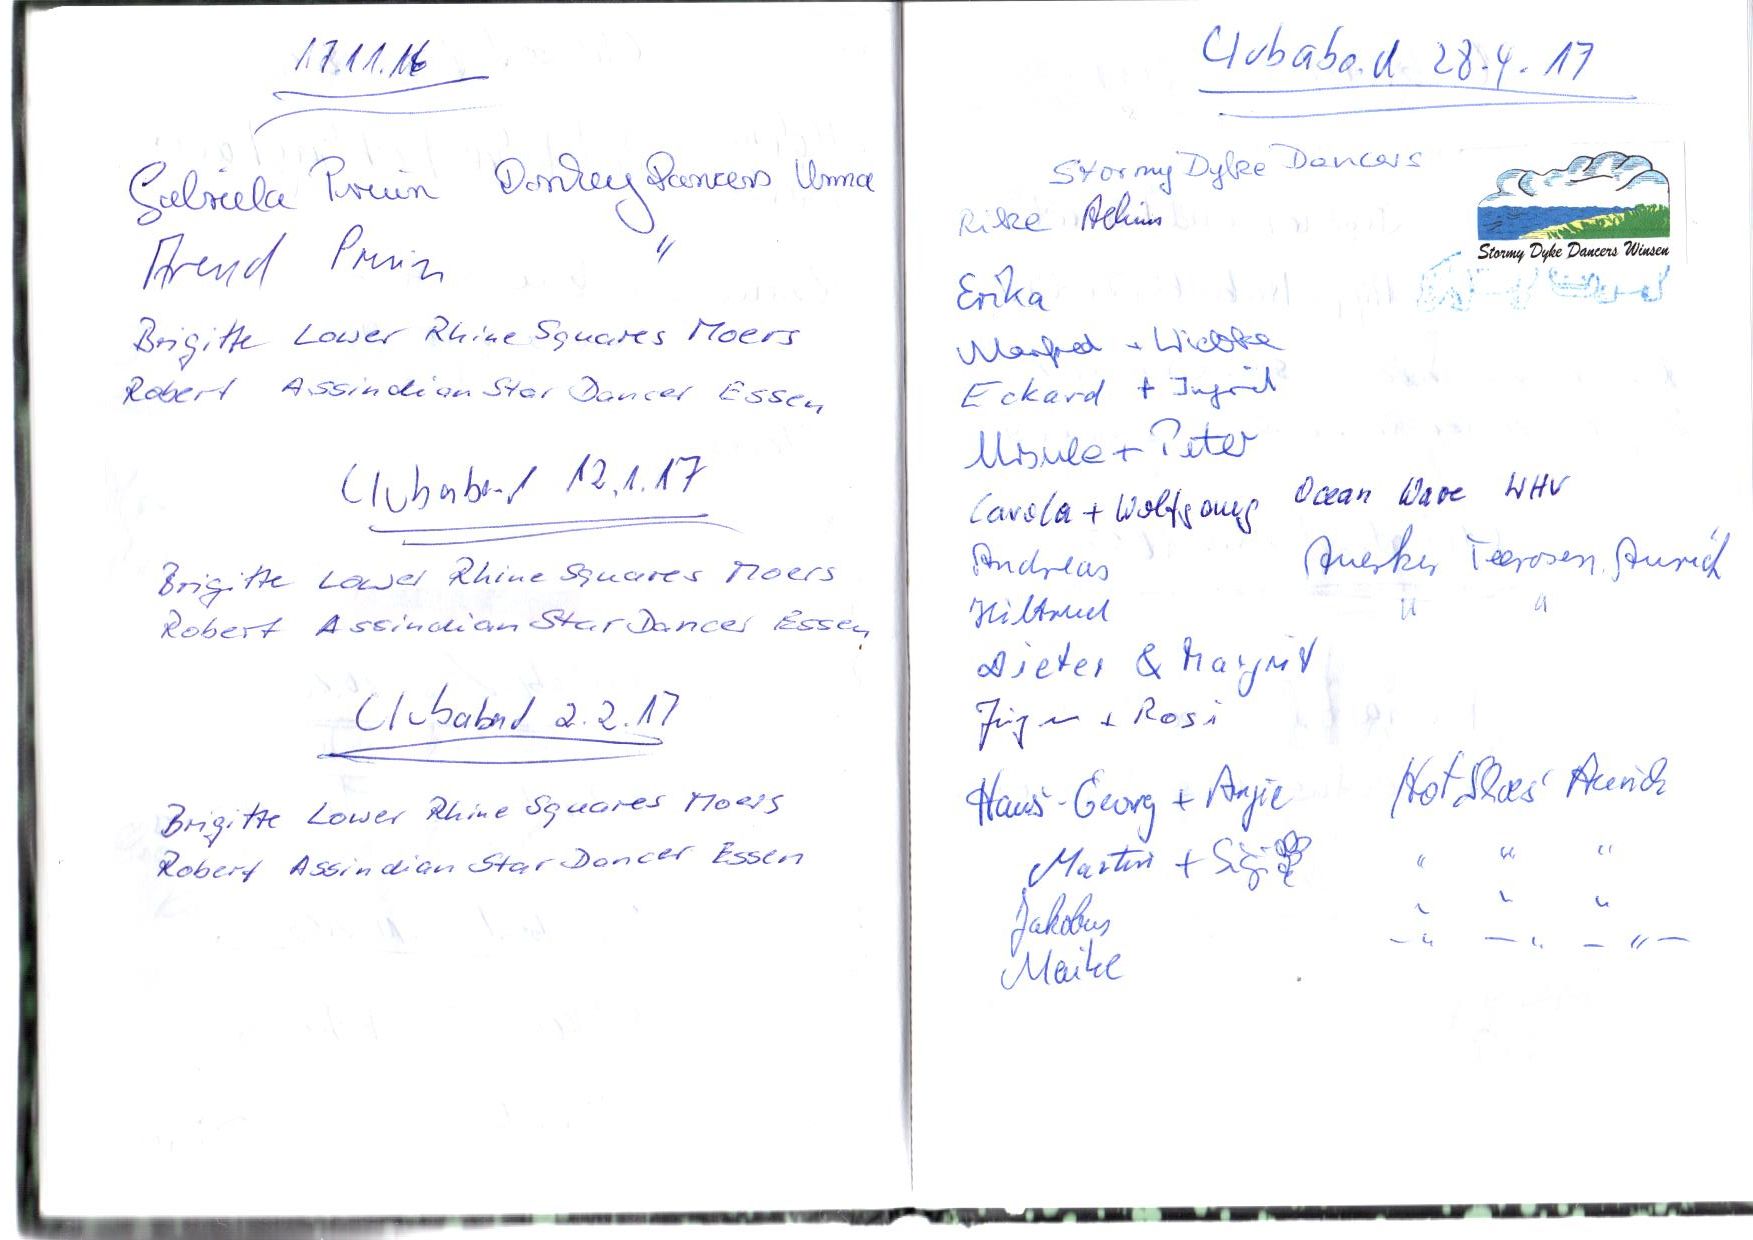 17.11.16
Gabriela Donkey Dancers Unna
Arend "
Brigitte Lower Rhine Squares Moers
Robert Assindian Star Dancer Essen
Clubabend 12.1.17
Brigitte Lower Rhine Squares Moers
Robert Assindian Star Dancer Essen
Clubabend 2.2.17
Brigitte Lower Rhine Squares Moers
Robert Assindian Star Dancer Essen
Clubabend 28.4.17
Stormy Dyke Dancers
Stormy Dyke Dancers Winsen
Rike Achim
Erika
Manfred + Wiebke
Eckard + Ingrid
+ Peter
Carola + Wolfgang Ocean Wave WHV
Andreas Auerker Teerosen Aurich
Hiltrud " "
Dieter & Margrit
Jürgen + Rosi
Hans-Georg + Angie Hot Aurich
Martin + Sigi " " "
Jakobus " " "
Maike – " – " – " –